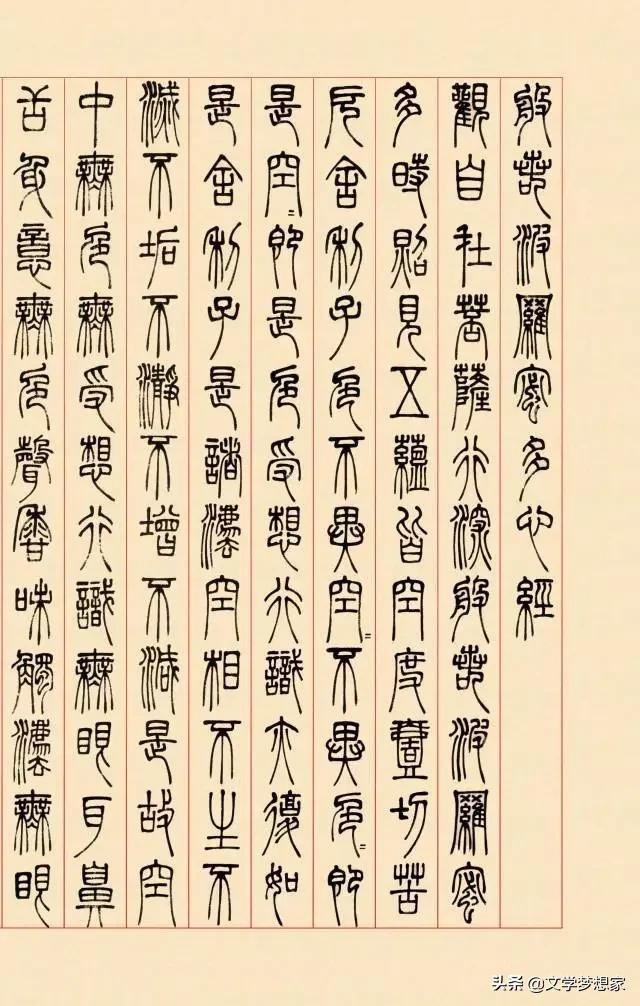 般若波羅蜜多心經
觀自在菩薩行深般若波羅蜜
多時照見五蘊皆空度壹切苦
厄舍利子色不異空〻不異色〻即
是空〻即是色受想行識亦復如
是舍利子是諸法空相不生不
滅不垢不瀞不增不減是故空
中無色無受想行識無眼耳鼻
舌身意無色聲香味觸法無眼
头条 @文学梦想家